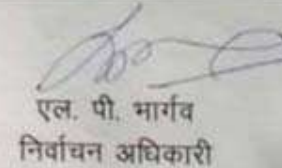 एल. पी. भार्गव
निर्वाचन अधिकारी